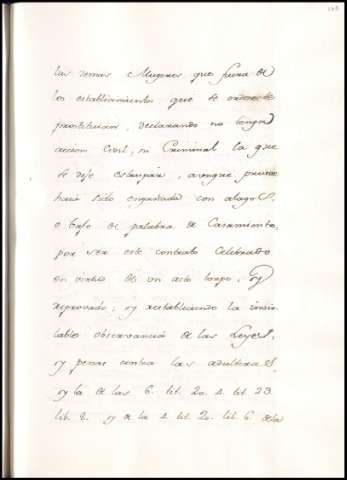 las demas Mugeres, que fuera de
los establecimientos que se ordenen de
prostitucion, declarando no tenga
accion Civil, ni Criminal la que
se deje estrupar, aunque pruebe
haver sido engañada con alagos,
o bajo de palabra de Casamiento,
por ser este contrato Celebrado
en virtud de un acto torpe, y
reprovado; y restableciendo la invio
lable observancia de las Leyes,
y penas contra las adulteras,
y la de las 6. tit. 20. 4. tit. 23.
lib. 8. y de la 4. tit. 20. lib. 6. de la